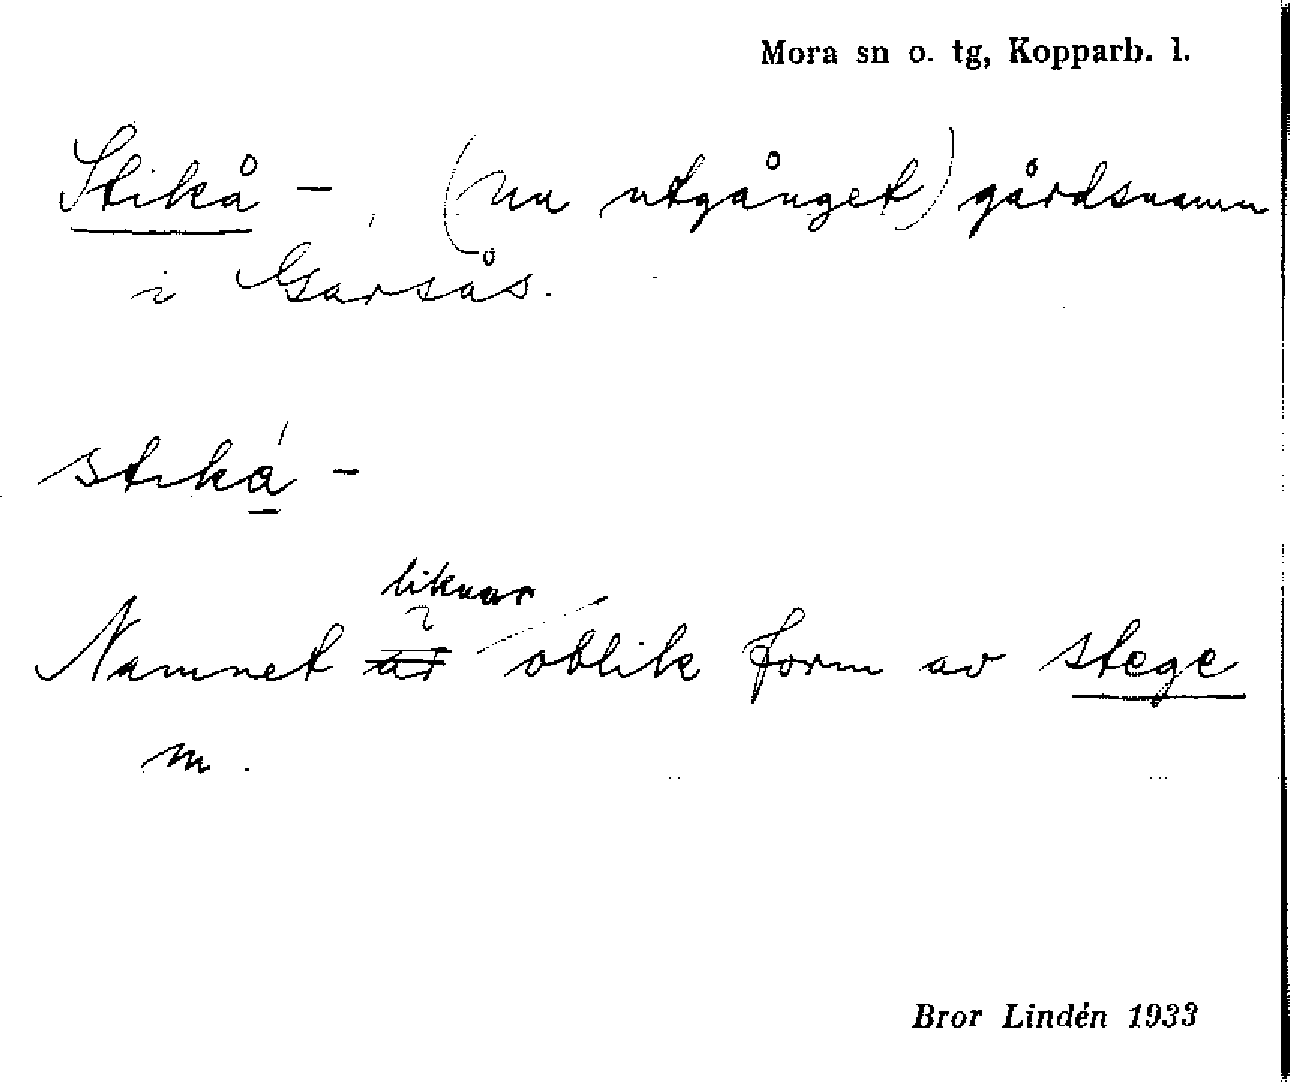 Mora sn o. tg, Kopparb. l.
Stikå – (nu utgånget) gårdsnamn
i Garsås.
stiká –
liknar
Namnet är oblik form av stege
m.
Bror Lindén 1933